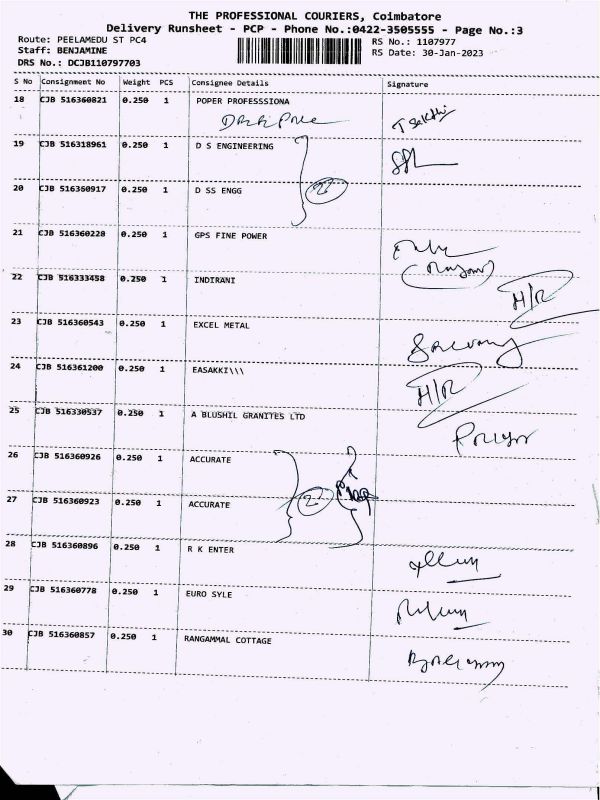 THE PROFESSIONAL COURIERS, Coimbatore
Delivery Runsheet - PCP - Phone No.:0422-3505555 - Page No.:3
Route: PEELAMEDU ST PC4
RS No.: 1107977
Staff: BENJAMINE
RS Date: 30-Jan-2023
DRS No.: DCJB110797703
S No Consignment No Weight PCS Consignee Details Signature
18 CJB 516360821 0.250 1 POPER PROFESSSIONA
T Sakthi
19 CJB 516318961 0.250 1 D S ENGINEERING
20 CJB 516360917 0.250 1 D SS ENGG
2
21 CJB 516360228 0.250 1 GPS FINE POWER
22 CJB 516333458 0.250 1 INDIRANI
H/R
23 CJB 516360543 0.250 1 EXCEL METAL
24 CJB 516361200 0.250 1 EASAKKI\\\
H/R
25 CJB 516330537 0.250 1 A BLUSHIL GRANITES LTD
26 CJB 516360926 0.250 1 ACCURATE
2
27 CJB 516360923 0.250 1 ACCURATE
28 CJB 516360896 0.250 1 R K ENTER
29 CJB 516360778 0.250 1 EURO SYLE
30 CJB 516360857 0.250 1 RANGAMMAL COTTAGE